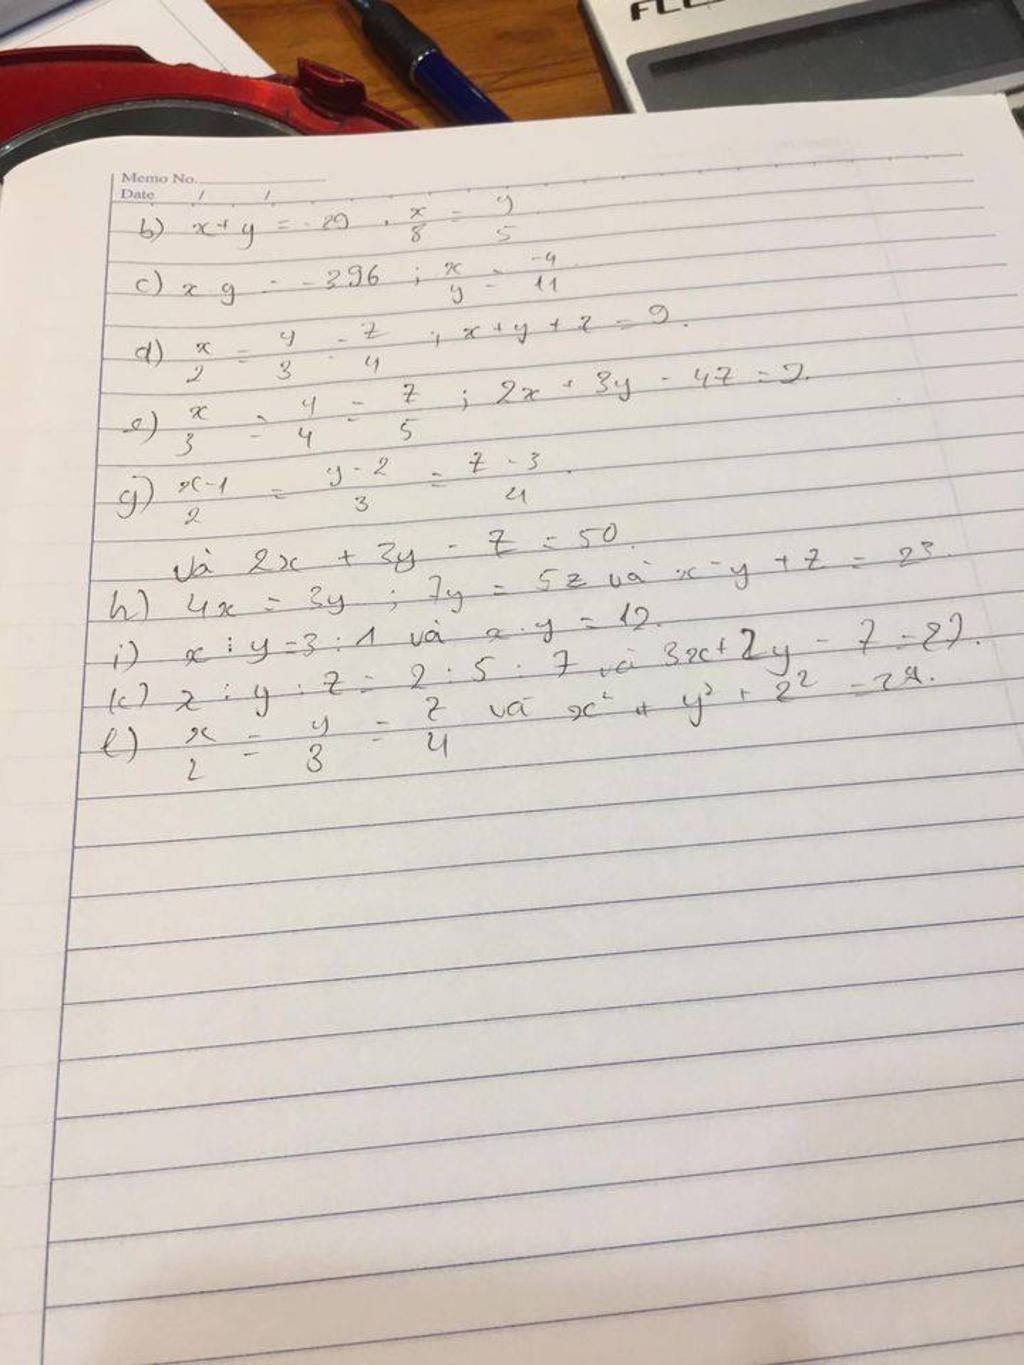 Memo No.
Date / /
b) x + y = -29 . x/8 = y/5
c) x y = -396 ; x/y = -4/11
d) x/2 = y/3 = z/4 ; x + y + z = 9.
e) x/3 = y/4 = z/5 ; 2x + 3y - 4z = 2.
g) x-1/2 = y-2/3 = z-3/4.
và 2x + 3y - z = 50.
h) 4x = 3y ; 7y = 5z và x - y + z = 23.
i) x : y = 3 : 1 và x.y = 12.
k) x : y : z = 2 : 5 : 7 và 3x + 2y - z = 27.
l) x/2 = y/3 = z/4 và x² + y² + z² = 29.